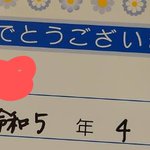 でとうござい
令和5年4